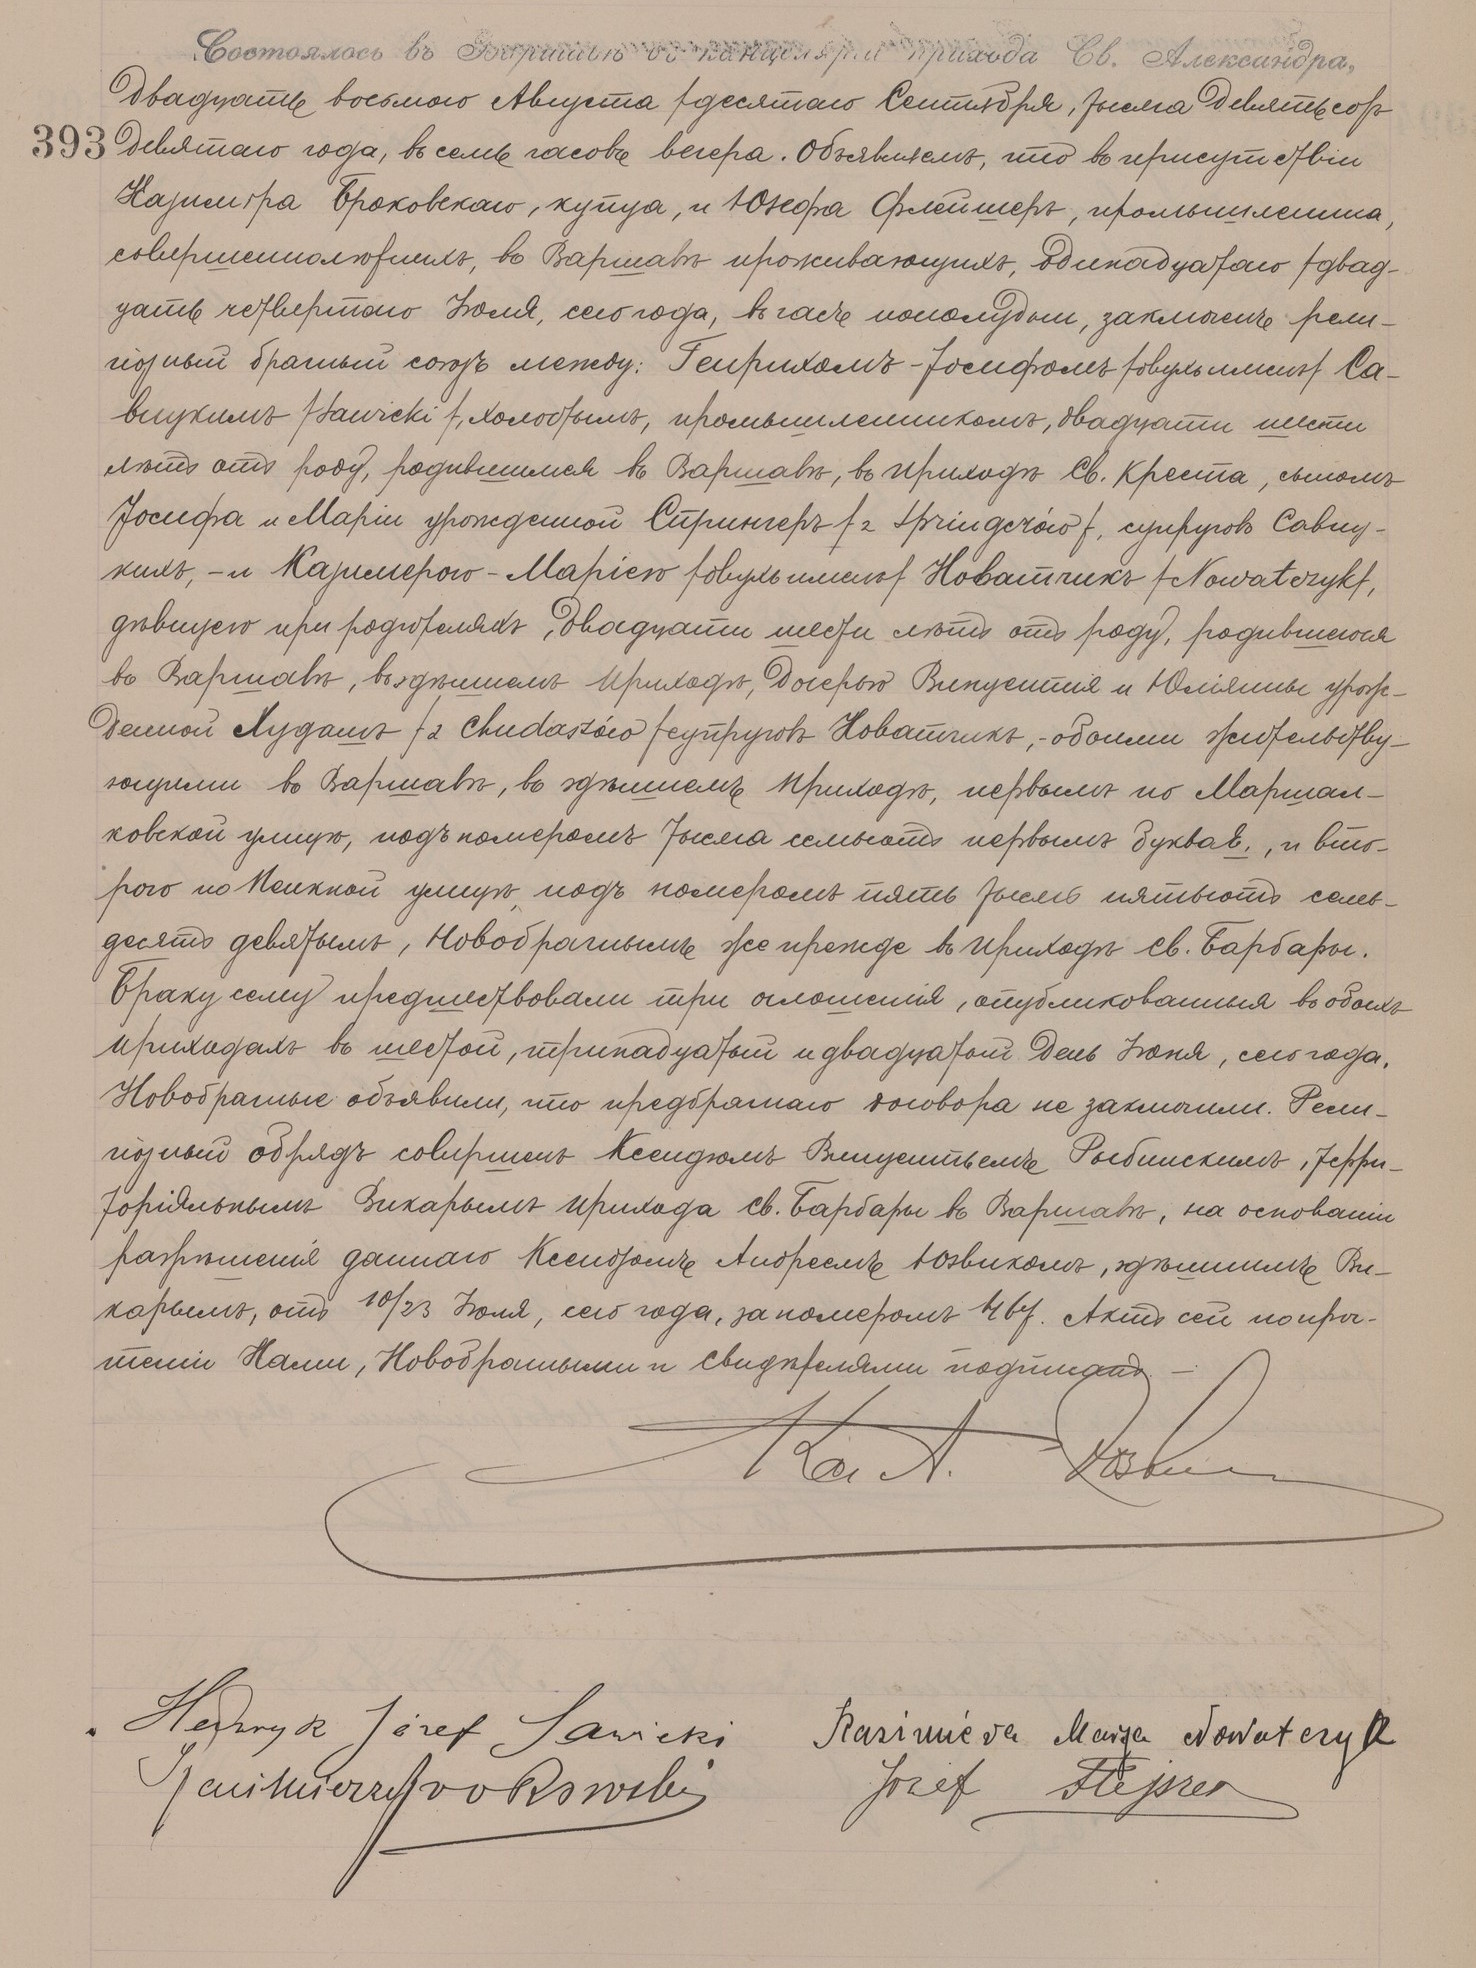 Состоялось въ Варшавѣ въ канцеляріи прихода Св. Александра,
двадцать восьмого Августа /десятаго Сентября, тысяча девятьсотъ
393 девятаго года, въ семь часовъ вечера. Объявляемъ, что въ присутствіи
Казиміра Броковскаго, купца, и Юзефа Флейшеръ, промышленника,
совершеннолѣтнихъ, въ Варшавѣ проживающихъ, одинадцатаго /двад-
цать четвертаго Іюля, сего года, въ часъ пополудни, заключенъ рели-
гіозный брачный союзъ между: Генрихомъ-Іосифомъ /двухъ именъ/ Са-
вицкимъ /Sawicki/, холостымъ, промышленникомъ, двадцати шести
лѣтъ отъ роду, родившимся въ Варшавѣ, въ приходѣ Св. Креста, сыномъ
Іосифа и Маріи урожденной Спрингеръ /z Springerów/, супруговъ Савиц-
кихъ, - и Казимерою-Маріею /двухъ именъ/ Новатчикъ /Nowatczyk/,
дѣвицею при родителяхъ, двадцати шести лѣтъ отъ роду, родившеюся
въ Варшавѣ, въ здѣшнемъ приходѣ, дочерью Винцентія и Юліянны урож-
денной Худашъ /z Chudaszów/ супруговъ Новатчикъ, - обоими жительству-
ющими въ Варшавѣ, въ здѣшнемъ приходѣ, первымъ по Маршал-
ковской улицѣ, подъ номеромъ тысяча семьсотъ первымъ буква Е., и вто-
рого по Пенкной улицѣ, подъ номеромъ пять тысячъ пятьсотъ семь-
десятъ девятымъ, Новобрачнымъ же прежде въ приходѣ св. Барбары.
Браку сему предшествовали три оглашенія, опубликованныя въ обоихъ
приходахъ въ шестой, тринадцатый и двадцатый день Іюня, сего года.
Новобрачные объявили, что предбрачнаго договора не заключили. Рели-
гіозный обрядъ совершенъ Ксендзомъ Винцентьемъ Рыбинскимъ, терри-
торіяльнымъ Викарымъ прихода св. Барбары въ Варшавѣ, на основаніи
разрѣшенія даннаго Ксендзомъ Андреемъ Юзвикомъ, здѣшнимъ Ви-
карымъ, отъ 10/23 Іюля, сего года, за номеромъ 467. Актъ сей по про-
чтеніи Нами, Новобрачными и Свидѣтелями подписанъ. -
А.
Henryk Józef Sawicki Kazimiera Marja Nowatczyk
Kazimierz Brokowski Józef Flejszer